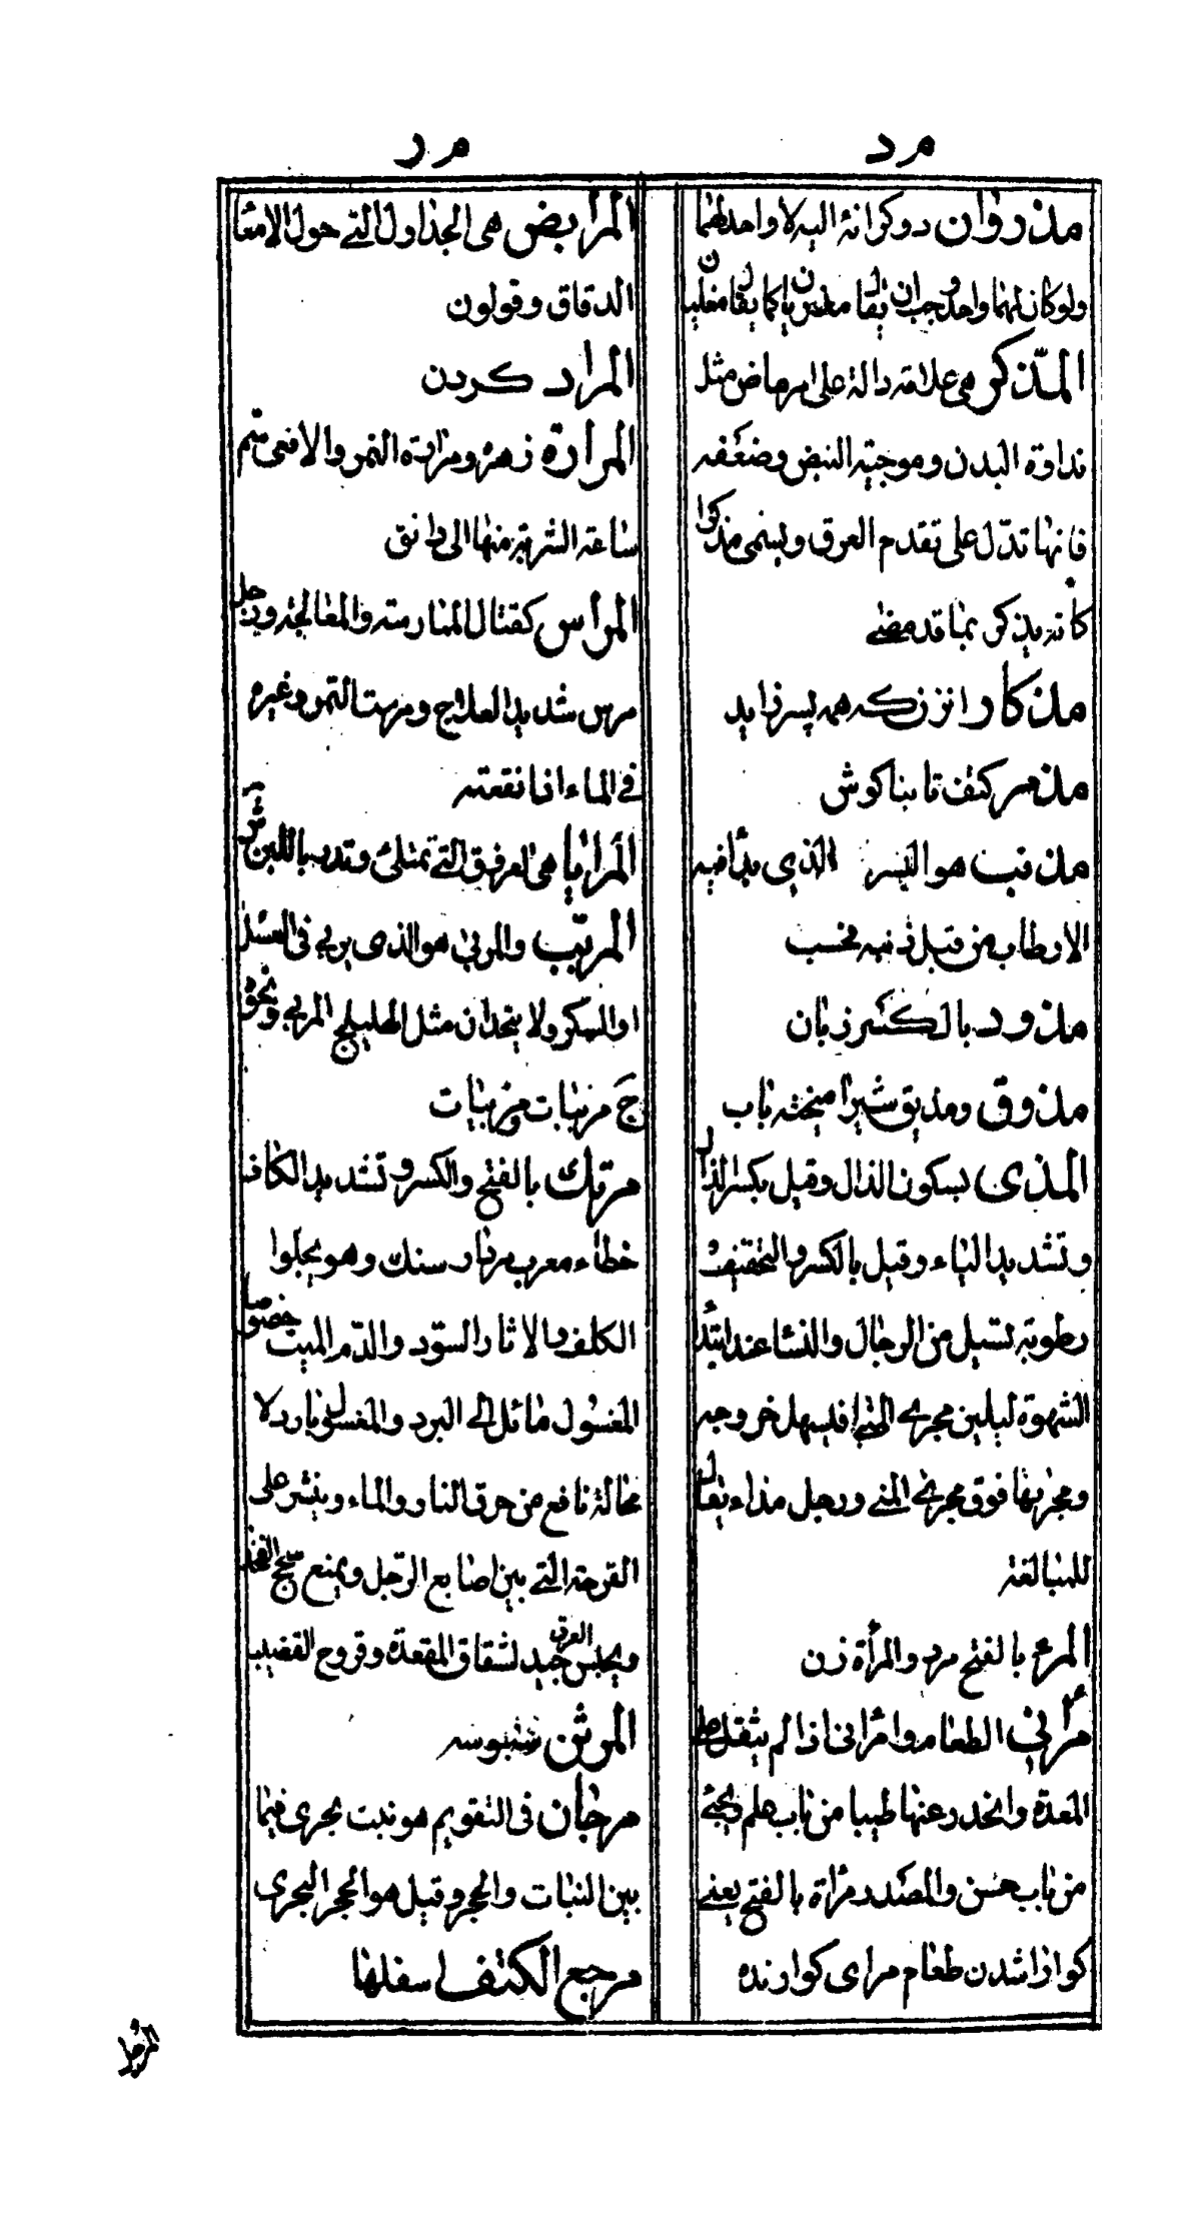 م د
مذروان دو کرانهٔ الیه لا واحد لهما
ولو کان لهما واحد وجب ان یقال مذریان کما یقال مقلیان
المذکر هی علامة دالة علی امر ماض مثل
نداوة البدن وموجیة النبض وضعفه
فانها تدل علی تقدم العرق ویسمی مذکرا
کانه یذکر بما قد مضی
مذکار انزن که همه پسر زاید
مذمر کتف تا بناکوش
مذنب هو البسر الذی بدأ فیه
الارطاب من قبل ذنبه فحسب
مذود بالکسر زبان
مذوق ومذیق شیر آمیخته بآب
المذی بسکون الذال وقیل بکسر الذال
وتشدید الیاء وقیل بالکسر والتخفیف
رطوبة تسیل من الرجال والنسا عند ابتدأ
الشهوة لیلین مجری المنی فیسهل خروجه
ومجریها فوق مجری المنی ورجل مذاء یقال
للمبالغة
المرء بالفتح مرد والمرأة زن
مرأنی الطعام وامرانی اذا لم یثقل علی
المعدة وانحدر عنها طیبا من باب علم ویجئ
من باب حسن والمصدر مرأة بالفتح یعنی
کوارا شدن طعام مرای کوارنده
م ر
المرابض هی الجداول التی حول الامعا
الدقاق وقولون
المراد کردن
المرارة زهره ومرارة النمر والافعی سم
ساعة الشربة منها الی دانق
المراس کقتال الممارسة والمعالجة ورجل
مرس شدید العلاج ومرست التمر وغیره
فی الماء اذا نقعته
المرایا هی العروق التی تمتلئ وتدر باللبن
المربب والمربی هو الذی یربی فی العسل
او السکر ولا یتخذان مثل الهلیلج المربی ونحوه
ج مربیات ومربیات
مرتک بالفتح والکسر وتشدید الکاف
خطاء معرب مردار سنک وهو یجلوا
الکلف والاثار السود والدم المیت خصوصا
المغسول مائل الی البرد والمغسول بارد لا
محالة نافع من حرق النار والماء وینثر علی
القرحة التی بین اصابع الرجل ویمنع سحج الفخذ
ویحبس العرق جید لشقاق المقعدة وقروح القضیب
المرثن سنبوسه
مرجان فی التقویم هو نبت بحری فیما
بین النبات والحجر وقیل هو الحجر البحری
مرجع الکتف اسفلها